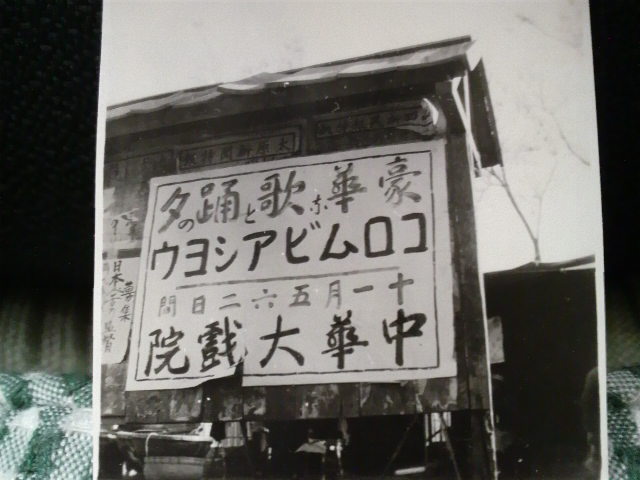 太原新聞
豪華な歌と踊の夕
コロムビアショウ
十一月五六二日間
中華大戯院
募集
日本